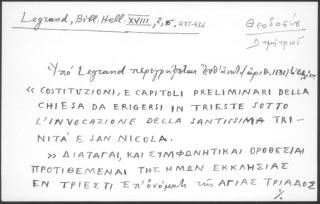 Legrand, Bibl. Hell. XVIII, 2, σ. 425-426
Θεοδοσίου
Δημητρίου
Ὑπὸ Legrand περιγράφεται
« COSTITUZIONI, E CAPITOLI PRELIMINARI DELLA
CHIESA DA ERIGERSI IN TRIESTE SOTTO
L'INVOCAZIONE DELLA SANTISSIMA TRI-
NITÁ E SAN NICOLA.
» ΔΙΑΤΑΓΑΙ, ΚΑΙ ΣΥΜΦΩΝΗΤΙΚΑΙ ΟΡΟΘΕΣΙΑΙ
ΠΡΟΤΙΘΕΜΕΝΑΙ ΤΗΣ ΗΜΩΝ ΕΚΚΛΗΣΙΑΣ
ΕΝ ΤΡΙΕΣΤΙ ΕΠ' ὀνόματι τῆς ΑΓΙΑΣ ΤΡΙΑΔΟΣ
%